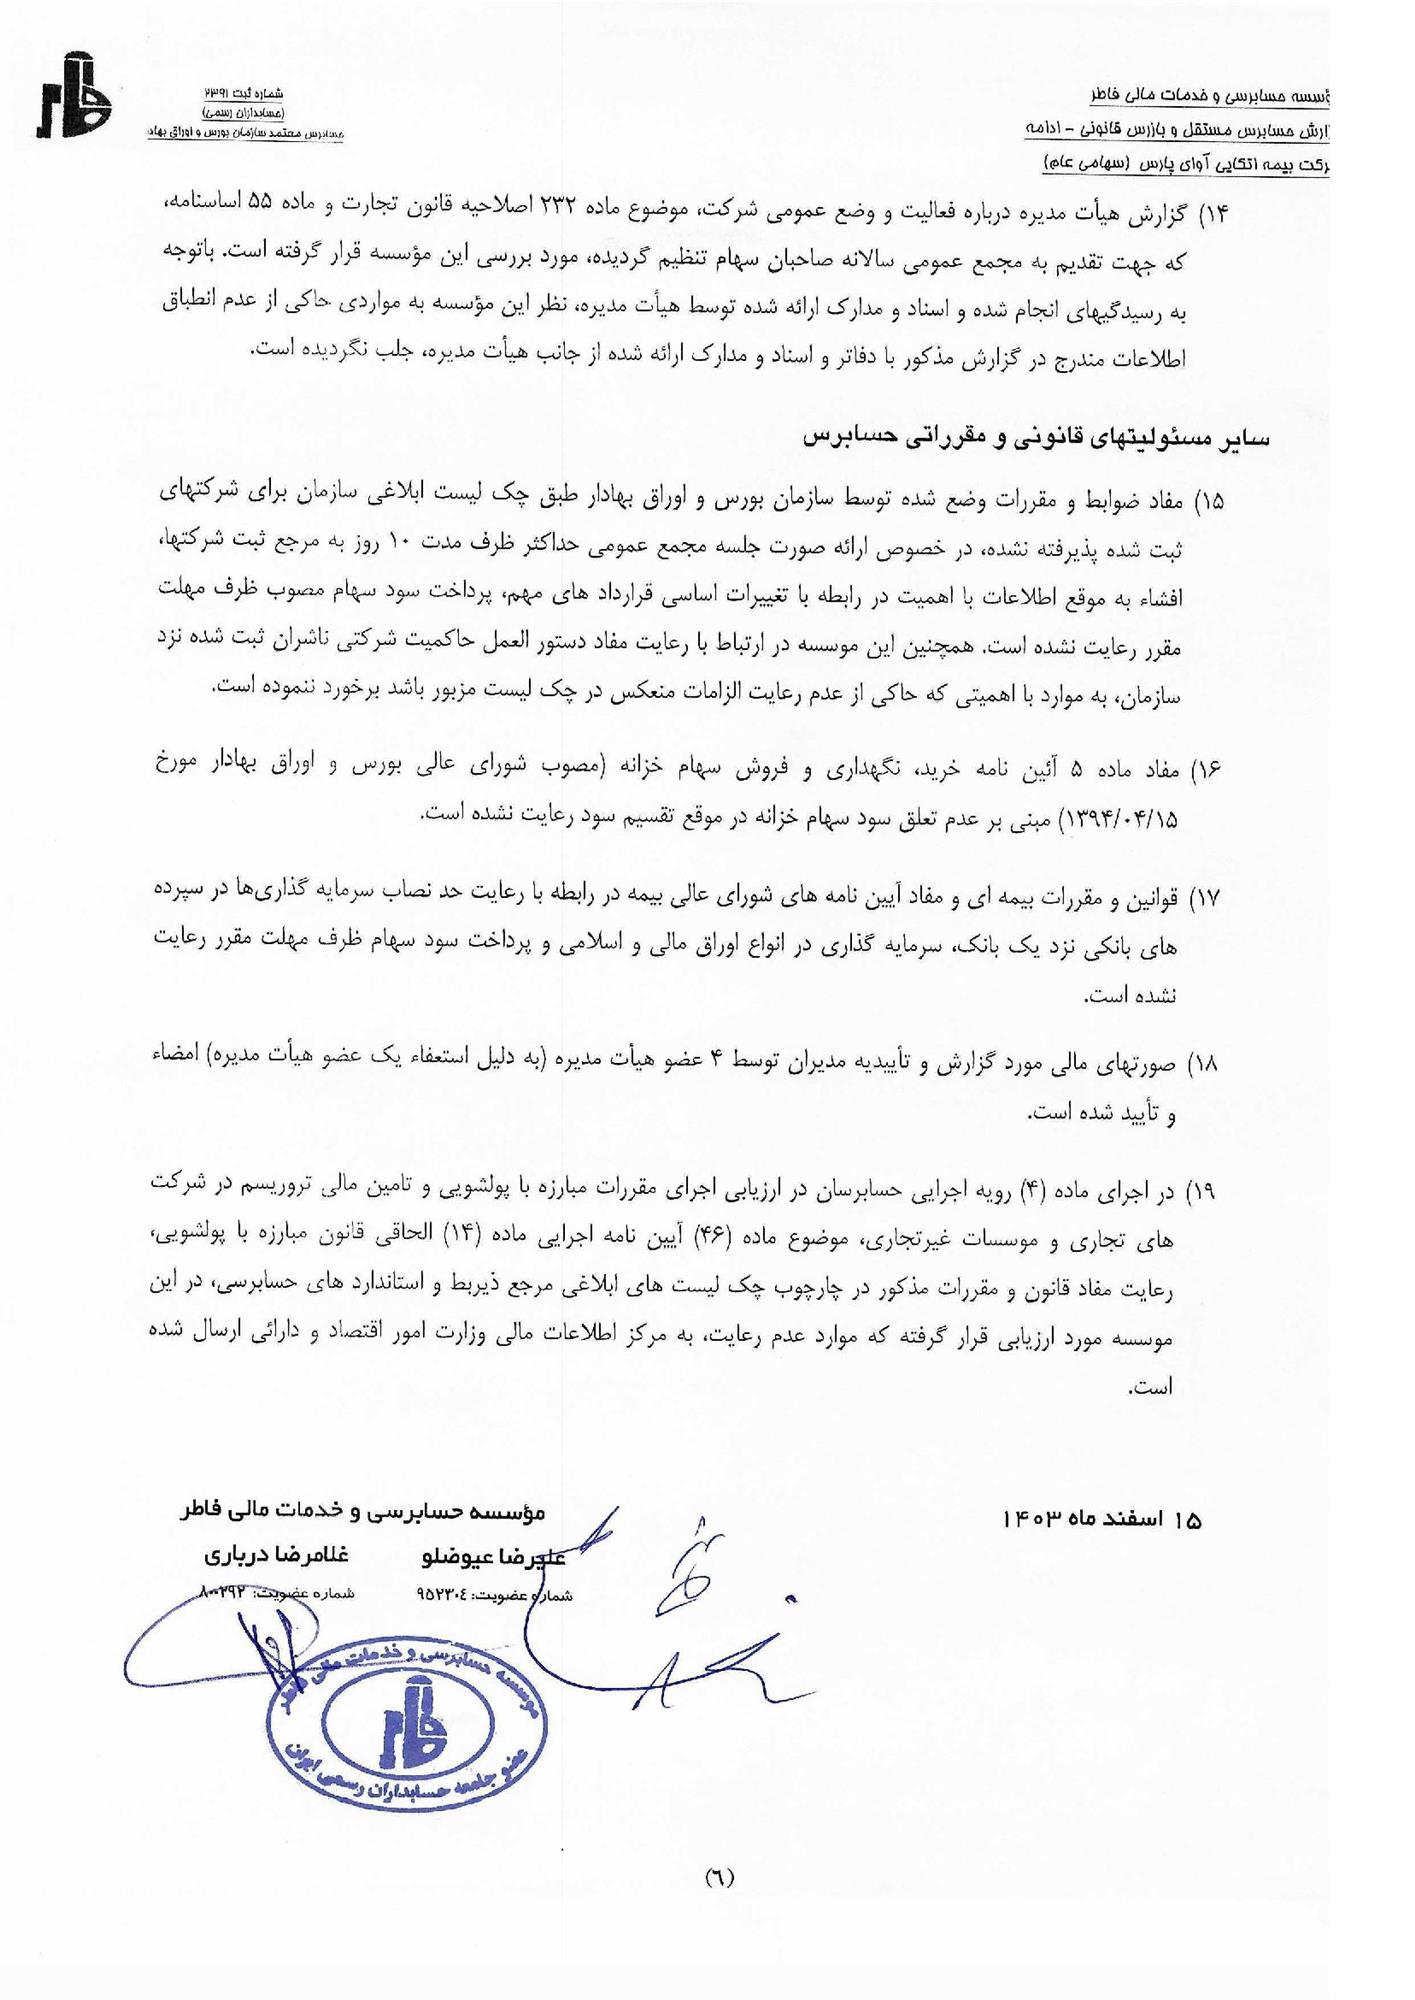 مؤسسه حسابرسی و خدمات مالی فاطر
گزارش حسابرس مستقل و بازرس قانونی - ادامه
شرکت بیمه اتکایی آوای پارس (سهامی عام)
شماره ثبت ۲۳۹۱
(حسابداران رسمی)
حسابرس معتمد سازمان بورس و اوراق بهادار
۱۴) گزارش هیأت مدیره درباره فعالیت و وضع عمومی شرکت، موضوع ماده ۲۳۲ اصلاحیه قانون تجارت و ماده ۵۵ اساسنامه،
که جهت تقدیم به مجمع عمومی سالانه صاحبان سهام تنظیم گردیده، مورد بررسی این مؤسسه قرار گرفته است. باتوجه
به رسیدگیهای انجام شده و اسناد و مدارک ارائه شده توسط هیأت مدیره، نظر این مؤسسه به مواردی حاکی از عدم انطباق
اطلاعات مندرج در گزارش مذکور با دفاتر و اسناد و مدارک ارائه شده از جانب هیأت مدیره، جلب نگردیده است.
سایر مسئولیتهای قانونی و مقرراتی حسابرس
۱۵) مفاد ضوابط و مقررات وضع شده توسط سازمان بورس و اوراق بهادار طبق چک لیست ابلاغی سازمان برای شرکتهای
ثبت شده پذیرفته نشده، در خصوص ارائه صورت جلسه مجمع عمومی حداکثر ظرف مدت ۱۰ روز به مرجع ثبت شرکتها،
افشاء به موقع اطلاعات با اهمیت در رابطه با تغییرات اساسی قرارداد های مهم، پرداخت سود سهام مصوب ظرف مهلت
مقرر رعایت نشده است. همچنین این موسسه در ارتباط با رعایت مفاد دستور العمل حاکمیت شرکتی ناشران ثبت شده نزد
سازمان، به موارد با اهمیتی که حاکی از عدم رعایت الزامات منعکس در چک لیست مزبور باشد برخورد ننموده است.
۱۶) مفاد ماده ۵ آئین نامه خرید، نگهداری و فروش سهام خزانه (مصوب شورای عالی بورس و اوراق بهادار مورخ
۱۳۹۴/۰۴/۱۵) مبنی بر عدم تعلق سود سهام خزانه در موقع تقسیم سود رعایت نشده است.
۱۷) قوانین و مقررات بیمه ای و مفاد آیین نامه های شورای عالی بیمه در رابطه با رعایت حد نصاب سرمایه گذاری‌ها در سپرده
های بانکی نزد یک بانک، سرمایه گذاری در انواع اوراق مالی و اسلامی و پرداخت سود سهام ظرف مهلت مقرر رعایت
نشده است.
۱۸) صورتهای مالی مورد گزارش و تأییدیه مدیران توسط ۴ عضو هیأت مدیره (به دلیل استعفاء یک عضو هیأت مدیره) امضاء
و تأیید شده است.
۱۹) در اجرای ماده (۴) رویه اجرایی حسابرسان در ارزیابی اجرای مقررات مبارزه با پولشویی و تامین مالی تروریسم در شرکت
های تجاری و موسسات غیرتجاری، موضوع ماده (۴۶) آیین نامه اجرایی ماده (۱۴) الحاقی قانون مبارزه با پولشویی،
رعایت مفاد قانون و مقررات مذکور در چارچوب چک لیست های ابلاغی مرجع ذیربط و استاندارد های حسابرسی، در این
موسسه مورد ارزیابی قرار گرفته که موارد عدم رعایت، به مرکز اطلاعات مالی وزارت امور اقتصاد و دارائی ارسال شده
است.
۱۵ اسفند ماه ۱۴۰۳
مؤسسه حسابرسی و خدمات مالی فاطر
علیرضا عیوضلو
غلامرضا درباری
شماره عضویت: ۹۵۲۳۰۴
شماره عضویت: ۸۰۰۲۹۲
موسسه حسابرسی و خدمات مالی فاطر
عضو جامعه حسابداران رسمی ایران
(۶)